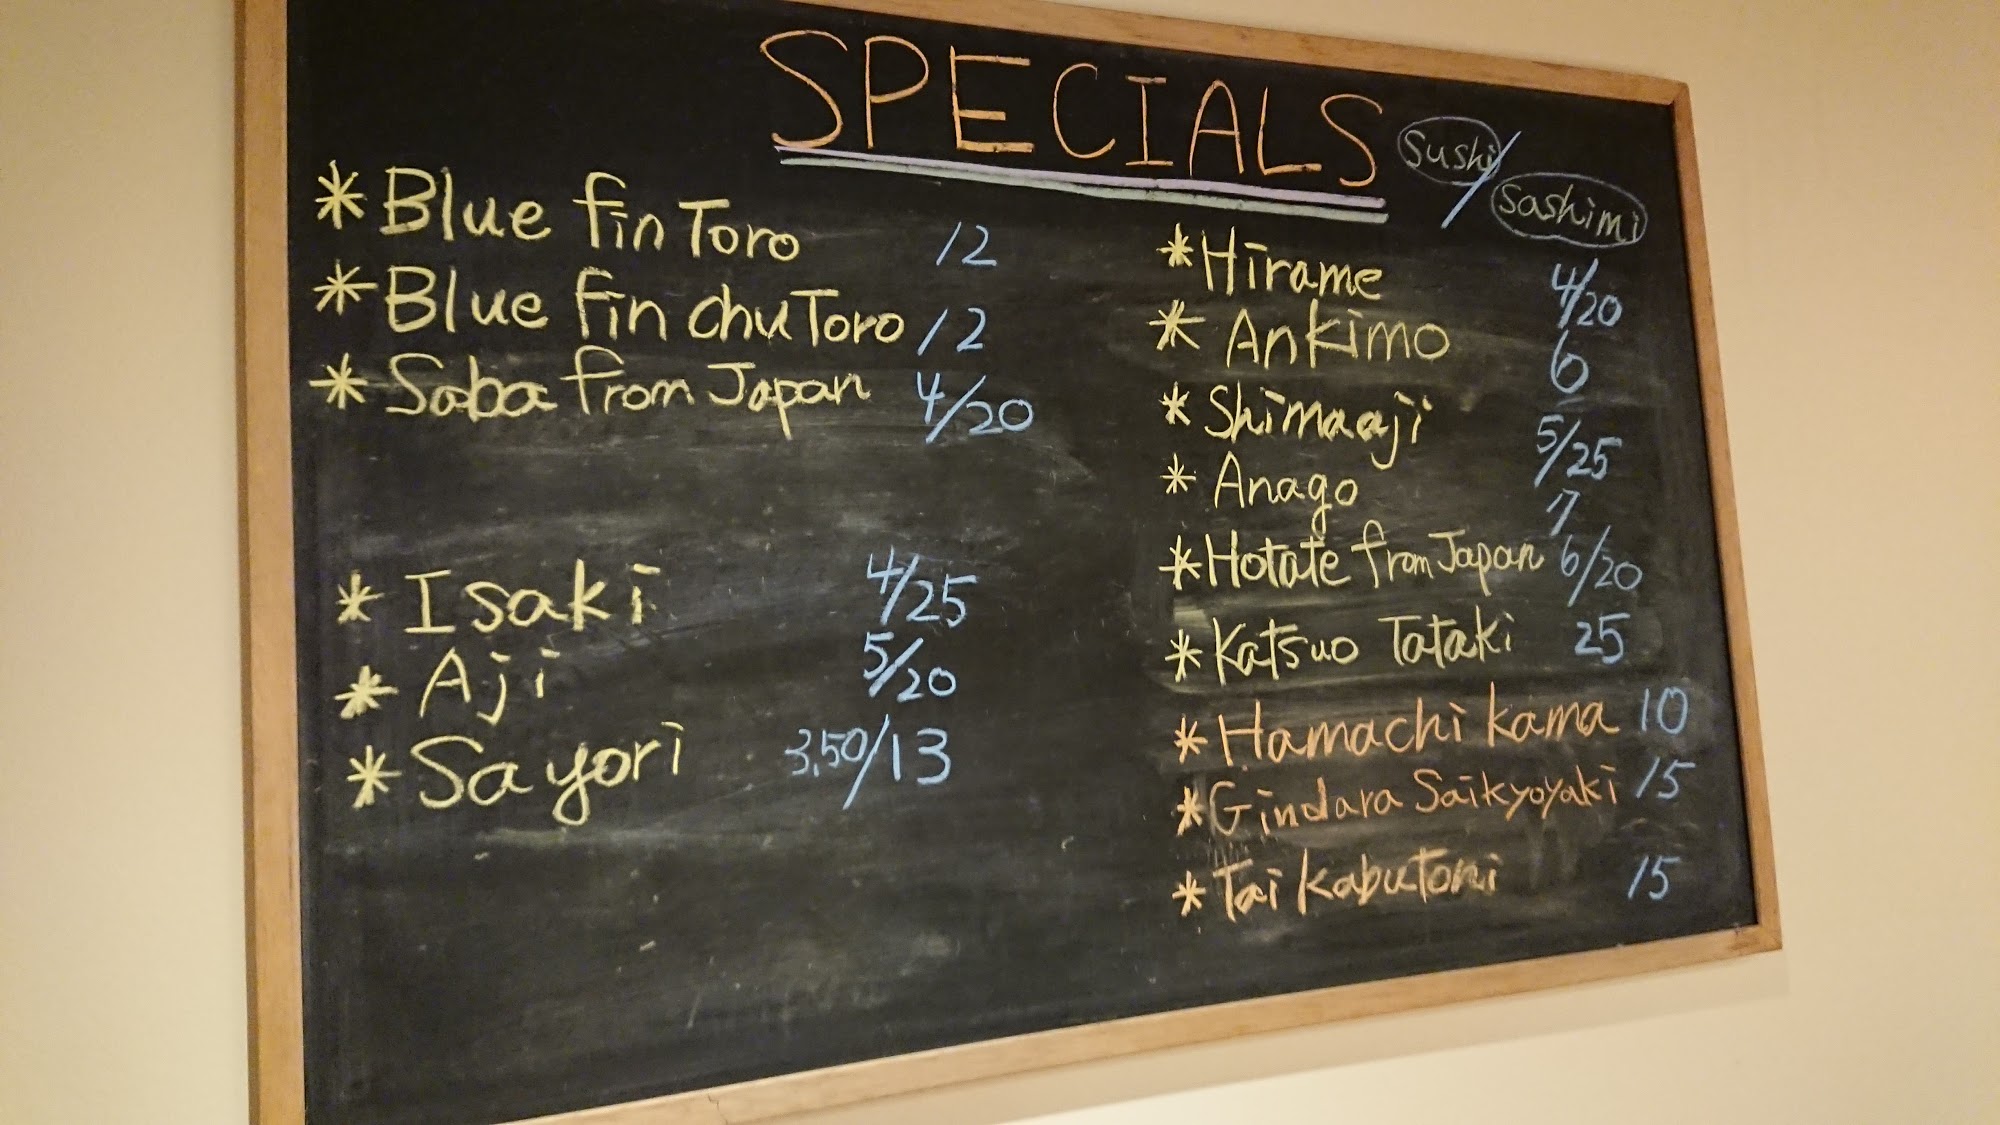 SPECIALS
Sushi/
Sashimi
* Blue fin Toro 12
* Blue fin chu Toro 12
* Saba from Japan 4/20
* Isaki 4/25
* Aji 5/20
* Sayori 3.50/13
* Hirame 4/20
* Ankimo 6
* Shimaaji 5/25
* Anago 7
* Hotate from Japan 6/20
* Katsuo Tataki 25
* Hamachi kama 10
* Gindara Saikyoyaki 15
* Tai kabutoni 15